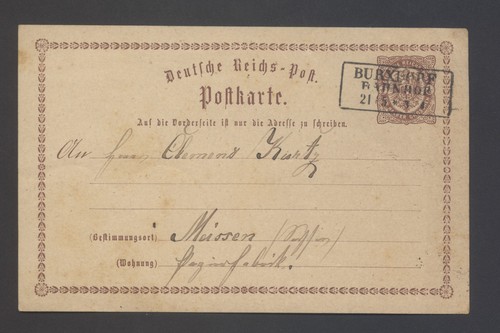 Deutsche Reichs-Post.
Postkarte.
BURXDORF
BAHNHOF
21
Auf die Vorderseite ist nur die Adresse zu schreiben.
An Herrn Clemens Kurtz
(Bestimmungsort) Meissen
(Wohnung) Papierfabrik.